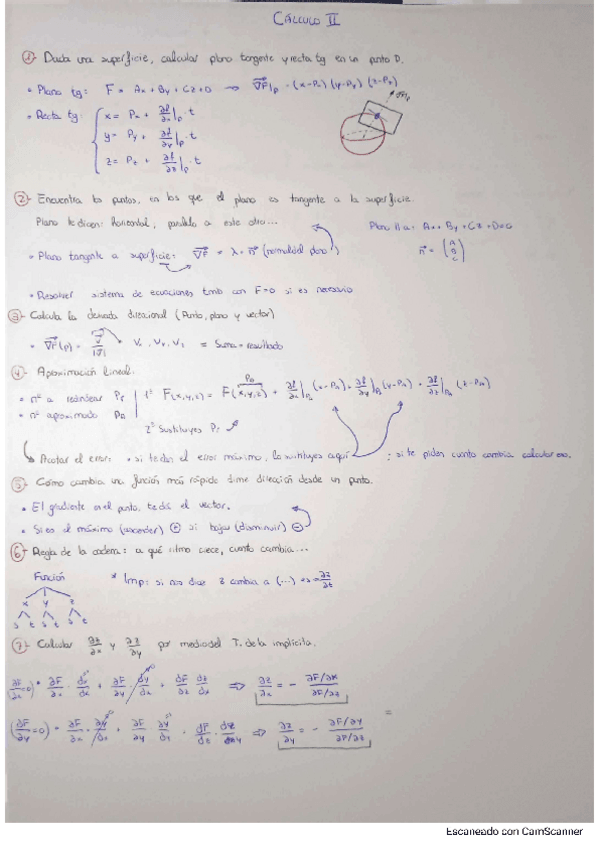 CÁLCULO II
① Dada una superficie, calcular plano tangente y recta tg en un punto P.
• Plano tg: F = Ax + By + Cz + D → ∇F|p · (x-Px) (y-Py) (z-Pz)
• Recta tg: x = Px + ∂f/∂x|p · t
y = Py + ∂f/∂y|p · t
z = Pz + ∂f/∂z|p · t
② Encuentra los puntos, en los que el plano es tangente a la superficie.
Plano te dicen: horizontal, paralelo a este otro... Plano Ax + By + Cz + D = 0
• Plano tangente a superficie: ∇F = λ · n (normal del plano) n = (A B C)
• Resolver sistema de ecuaciones tmb con F=0 si es necesario
③ Calcula la derivada direccional (Punto, plano y vector)
• ∇F(p) · v/|v| = Suma = resultado
④ Aproximación lineal.
• nº a
• nº aproximado
1º F(x,y,z) = F(x,y,z) + ∂f/∂x (x-Px) + ∂f/∂y (y-Py) + ∂f/∂z (z-Pz)
2º Sustituyes
Acotar el error: • si te dan el error máximo, lo sustituyes aquí ; si te piden cuanto cambia calcular eso.
⑤ Cómo cambia una función más rápido dime dirección desde un punto.
• El gradiente en el punto, te da el vector.
• Si es el máximo (ascender) ⊕ si bajas (disminuir) ⊖
⑥ Regla de la cadena: a qué ritmo crece, cuánto cambia...
Función * Imp: si nos dice z cambia a (...) es = ∂z/∂t
x y z
s t s t s t
⑦ Calcular ∂z/∂x y ∂z/∂y por medio del T. de la implícita.
(∂F/∂x = 0) = ∂F/∂x · dx/dx + ∂F/∂y · dy/dx + ∂F/∂z · dz/dx ⇒ ∂z/∂x = - ∂F/∂x / ∂F/∂z
(∂F/∂y = 0) = ⇒ ∂z/∂y = - ∂F/∂y / ∂F/∂z =
Escaneado con CamScanner